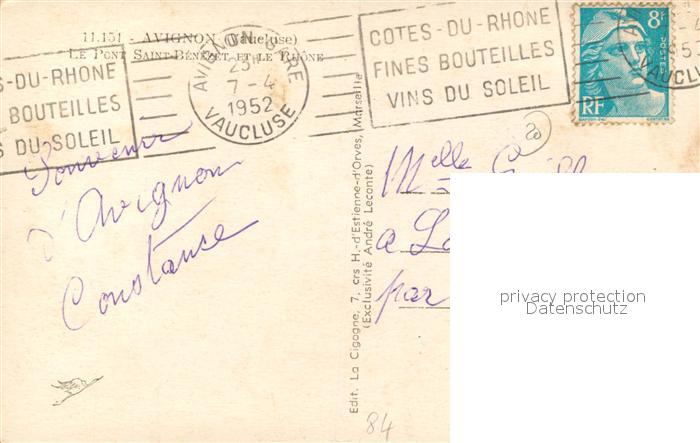 11.151 - AVIGNON (Vaucluse)
LE PONT SAINT-BÉNÉZET ET LE RHÔNE
S-DU-RHONE
BOUTEILLES
S DU SOLEIL
AVIGNON GARE
25
7-4
1952
VAUCLUSE
COTES-DU-RHONE
FINES BOUTEILLES
VINS DU SOLEIL
8F
POSTES
RF
VAUCLU
Souvenir
d'Avignon
Constance
Edit. La Cigogne, 7, crs H.-d'Estienne-d'Orves, Marseille
(Exclusivité André Leconte)
Melle
a La
par
privacy protection
Datenschutz
84